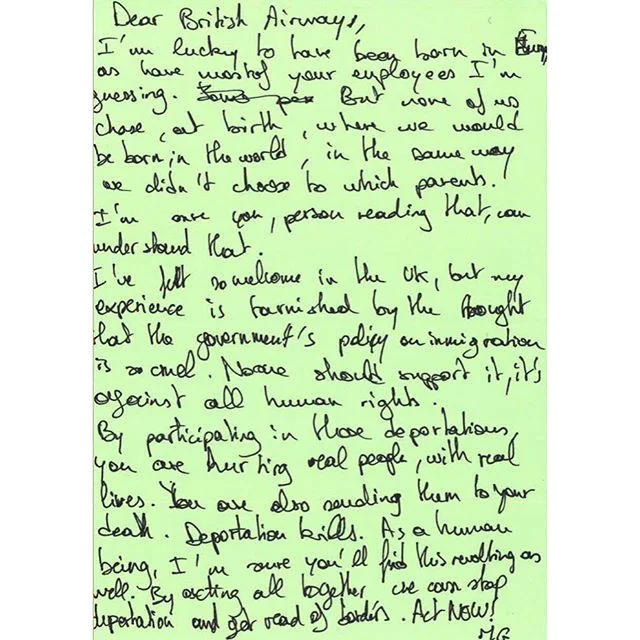 Dear British Airways,
I'm lucky to have been born in
as have most of your employees I'm
guessing. But none of us
chose, at birth, where we would
be born, in the world, in the same way
we didn't choose to which parents.
I'm sure you, person reading that, can
understand that.
I've felt so welcome in the UK, but my
experience is tarnished by the thought
that the government's policy on immigration
is so cruel. Noone should support it, it's
against all human rights.
By participating in those deportations,
you are hurting real people, with real
lives. You are also sending them to your
death. Deportation kills. As a human
being, I'm sure you'll find this revolting as
well. By acting all together, we can stop
deportation and get read of borders. Act NOW!